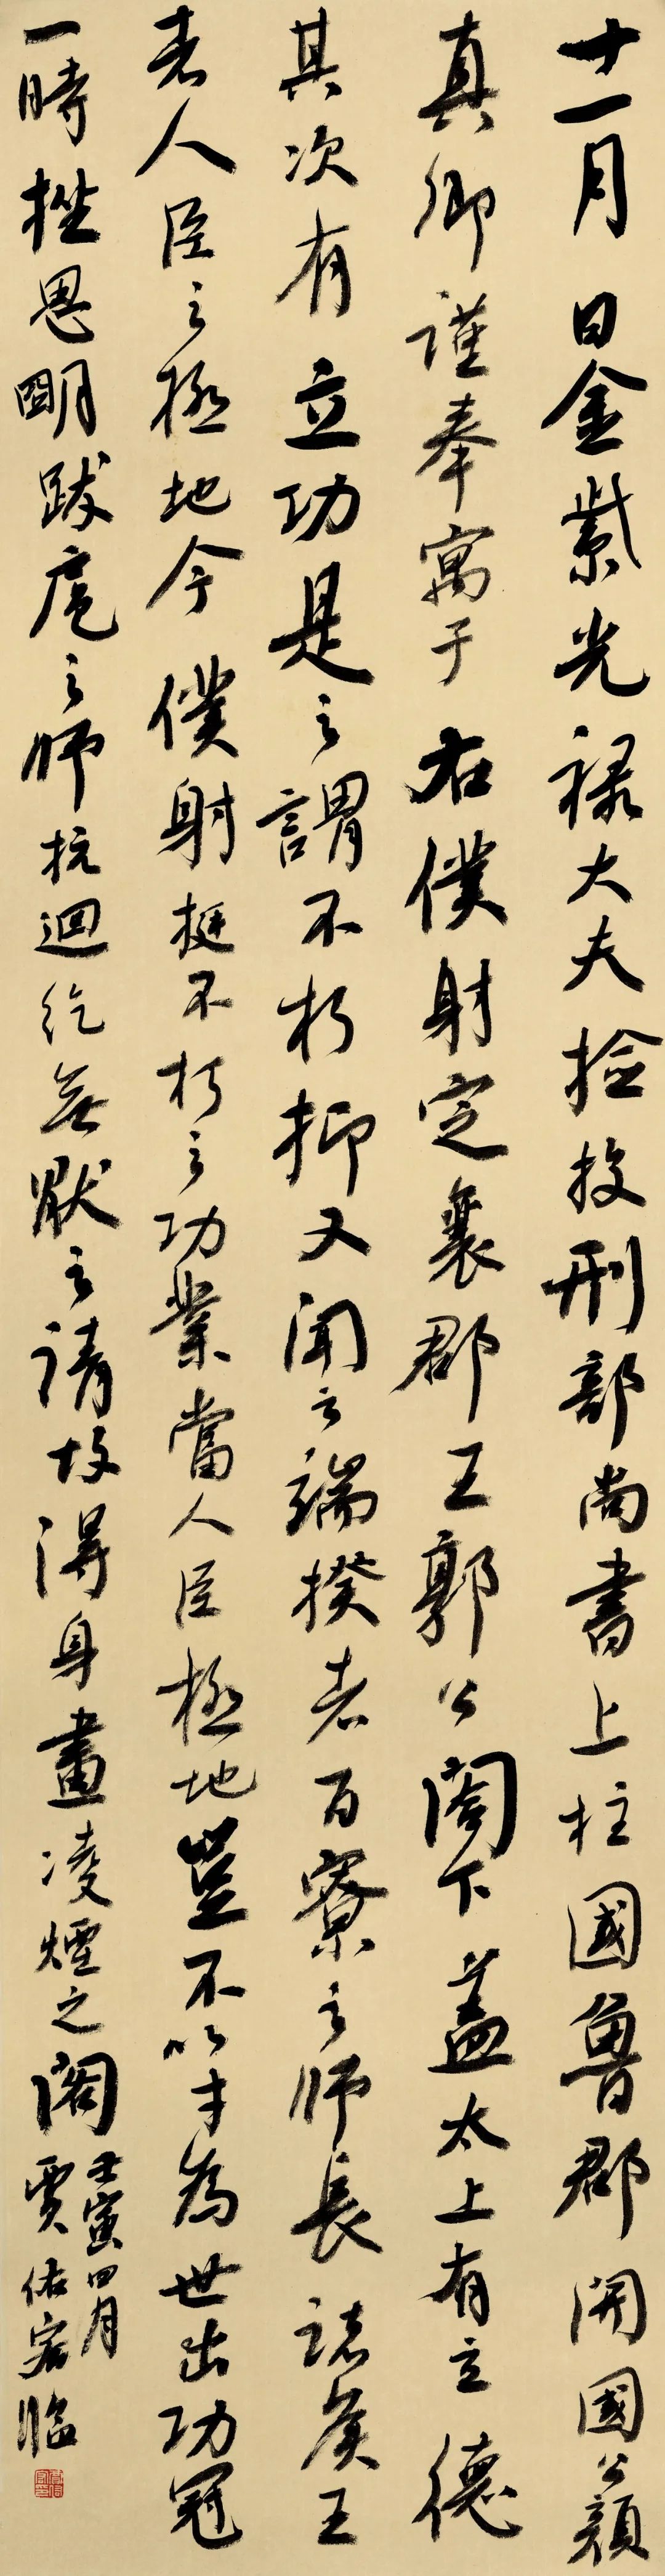 十一月日金紫光禄大夫捡挍刑部尚書上柱國魯郡開國公顔
真卿謹奉寓于右僕射定襄郡王郭公閣下蓋太上有立德
其次有立功是之謂不朽抑又聞之端揆者百寮之師長諸侯王
者人臣之極地今僕射挺不朽之功業當人臣極地豈不以才為世出功冠
一時挫思明跋扈之師抗迴紇無厭之請故得身畫凌煙之阁
壬寅四月
賈佑宏臨